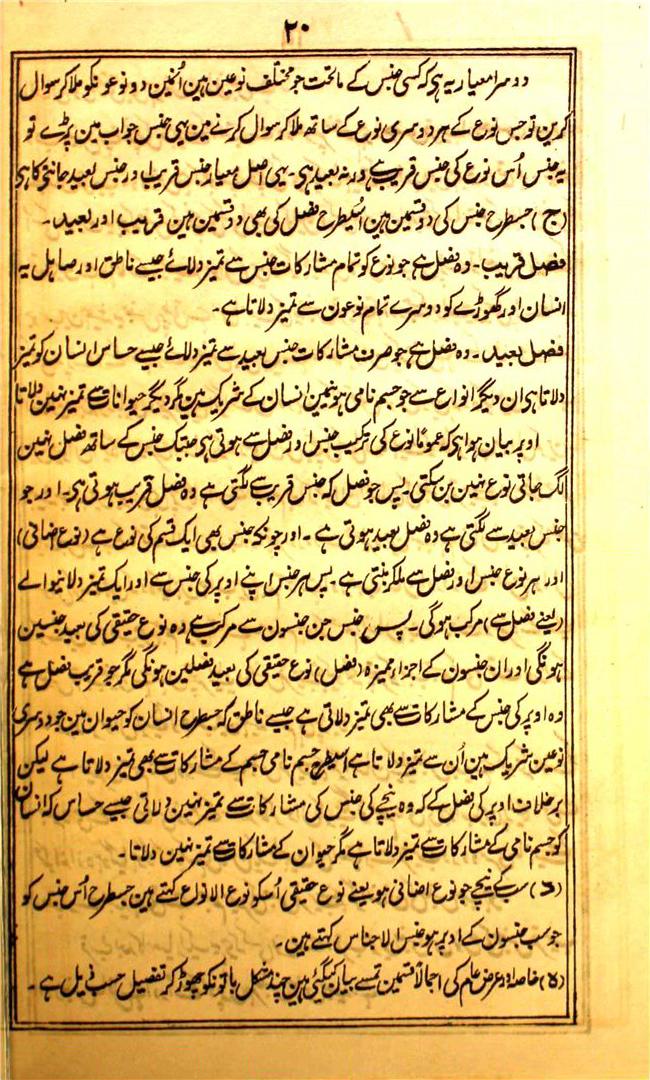 ۲۰
دوسرا معیار یہ ہی کہ کسی جنس کے ماتحت جو مختلف نوعین ہین اُنمین دو نوعونکو ملاکر سوال
کرین تو جس نوع کے ہر دوسری نوع کے ساتھ ملاکر سوال کرنے مین یہی جنس جواب مین پڑے تو
یہ جنس اُس نوع کی جنس قریب ہے ورنہ بعید ہی۔ یہی اصل معیار جنس قریب اور جنس بعید جاننے کا ہی
(ج) جسطرح جنس کی دو قسمین ہین اسیطرح فصل کی بھی دو قسمین ہین قریب اور بعید۔
فصل قریب۔ وہ فصل ہے جو نوع کو تمام مشارکات جنس سے تمیز دلائے جیسے ناطق اور صاہل یہ
انسان اور گھوڑے کو دوسرے تمام نوعون سے تمیز دلاتا ہے۔
فصل بعید۔ وہ فصل ہے جو صرف مشارکات جنس بعید سے تمیز دلائے جیسے حساس انسان کو تمیز
دلاتا ہی ان دیگر انواع سے جو جسم نامی ہونمین انسان کے شریک ہین مگر دیگر حیوانات سے تمیز نہین دلاتا
اوپر بیان ہوا ہی کہ عموماً نوع کی ترکیب جنس اور فصل سے ہوتی ہی جبتک جنس کے ساتھ فصل نہین
لگ جاتی نوع نہین بن سکتی۔ پس جو فصل کہ جنس قریب سے لگتی ہے وہ فصل قریب ہوتی ہی۔ اور جو
جنس بعید سے لگتی ہے وہ فصل بعید ہوتی ہے۔ اور چونکہ جنس بھی ایک قسم کی نوع ہے (نوع اضافی)
اور ہر نوع جنس اور فصل سے ملکر بنتی ہے۔ پس ہر جنس اپنے اوپر کی جنس سے اور ایک تمیز دلانیوالے
(یعنے فصل سے) مرکب ہوگی۔ پس جنس جن جنسون سے مرکب ہے وہ نوع حقیقی کی بعید جنسین
ہونگی اور ان جنسون کے اجزاء ممیزہ (فصل) نوع حقیقی کی بعید فصلین ہونگی مگر جو قریب فصل ہے
وہ اوپر کی جنس کے مشارکات سے بھی تمیز دلاتی ہے جیسے ناطق کہ جسطرح انسان کو حیوان مین جو دوسری
نوعین شریک ہین اُن سے تمیز دلاتا ہے اسیطرح جسم نامی جسم کے مشارکات سے بھی تمیز دلاتا ہے لیکن
برخلاف اوپر کی فصل کے کہ وہ نیچے کی جنس کی مشارکات سے تمیز نہین دلاتی جیسے حساس کہ انسان
کو جسم نامی کے مشارکات سے تمیز دلاتا ہے مگر حیوان کے مشارکات سے تمیز نہین دلاتا۔
(د) سب کے نیچے جو نوع اضافی ہو یعنے نوع حقیقی اُسکو نوع الانواع کہتے ہین جسطرح اُس جنس کو
جو سب جنسون کے اوپر ہو جنس الاجناس کہتے ہین۔
(ہ) خاصہ اور عرض عام کی اجمالاً قسمین تمسے بیان کیگئی ہین چند مشکل باتونکو چھوڑ کر تفصیل حسب ذیل ہے۔